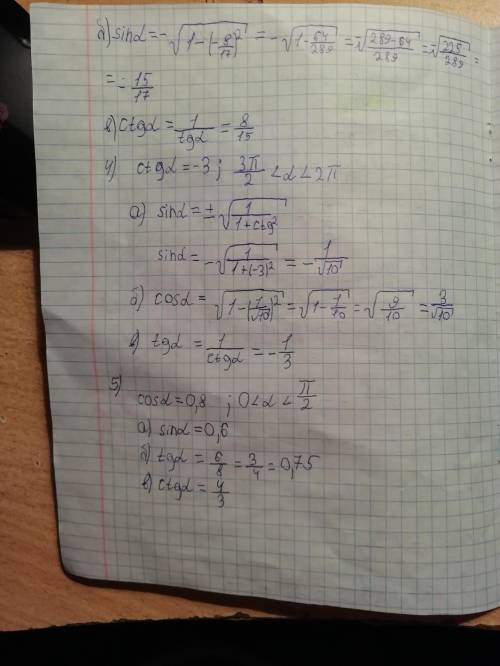 б) sinα = -√(1-(-8/17)²) = -√(1-64/289) = -√((289-64)/289) = -√(225/289) =
= -15/17
в) ctgα = 1/tgα = 8/15
4) ctgα = -3 ; 3π/2 < α < 2π
а) sinα = ±√(1/(1+ctg²))
sinα = -√(1/(1+(-3)²)) = -1/√10
б) cosα = √(1-(1/√10)²) = √(1-1/10) = √(9/10) = 3/√10
в) tgα = 1/ctgα = -1/3
5)
cosα = 0,8 ; 0 < α < π/2
а) sinα = 0,6
б) tgα = 6/8 = 3/4 = 0,75
в) ctgα = 4/3